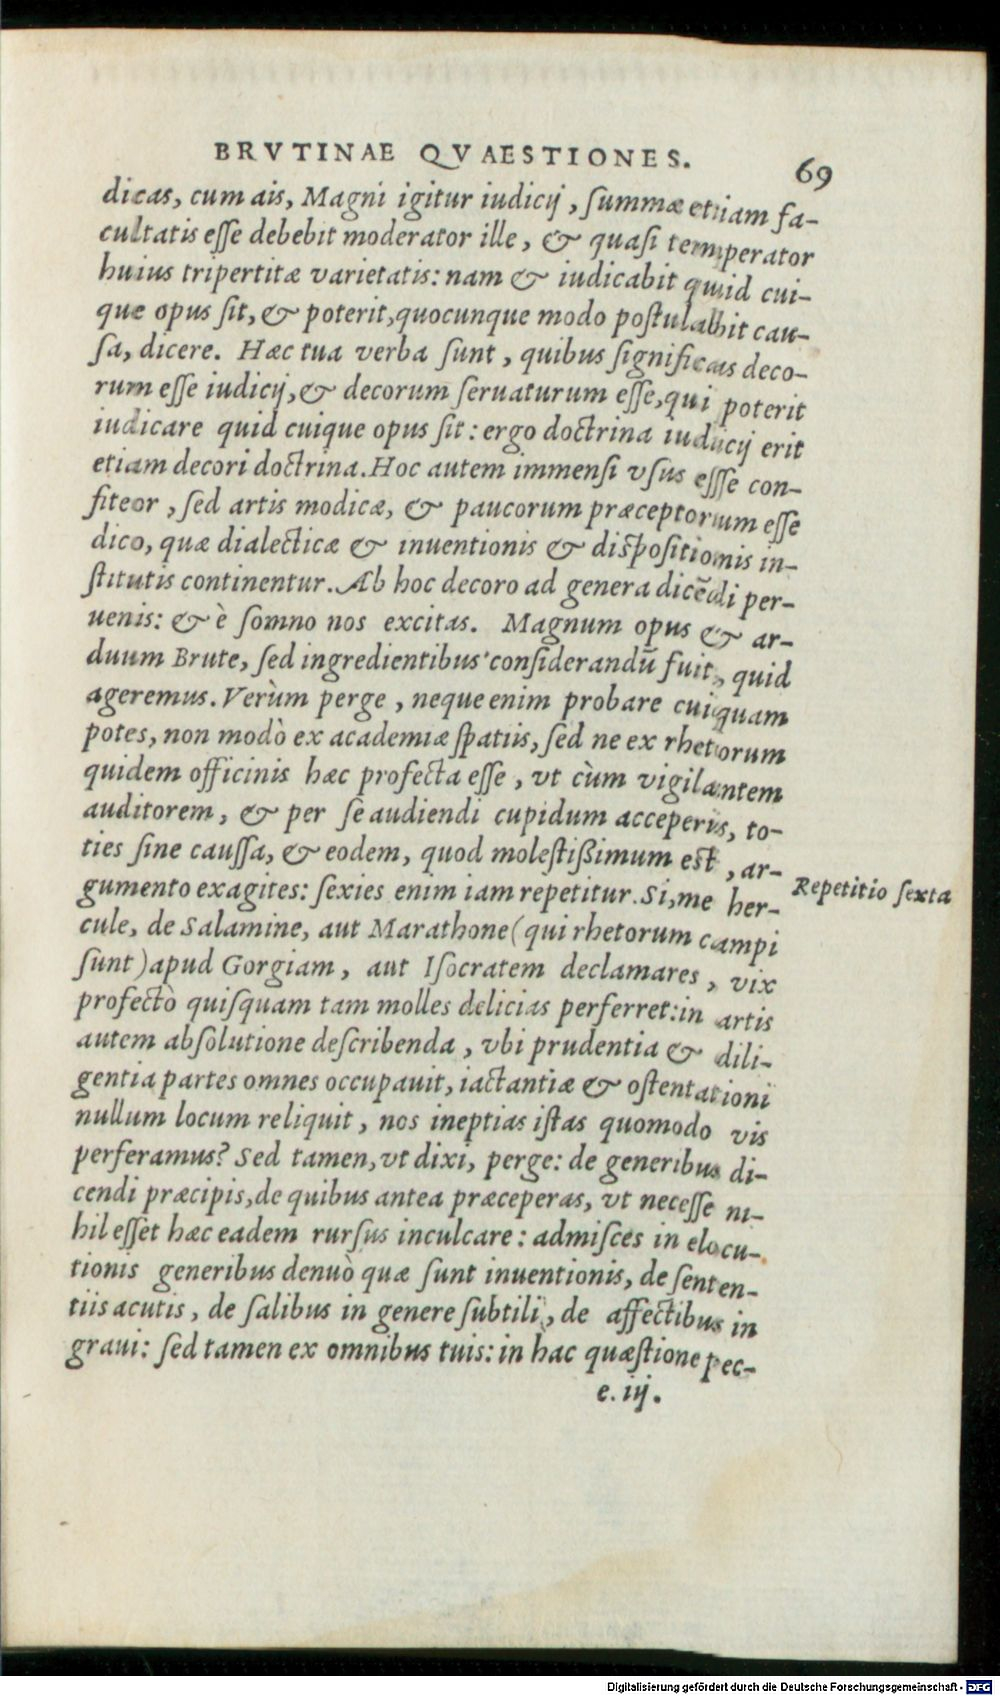 BRVTINAE QVAESTIONES. 69
dicas, cum ais, Magni igitur iudicij, summæ etiam fa-
cultatis esse debebit moderator ille, & quasi temperator
huius tripertitæ varietatis: nam & iudicabit quid cui-
que opus sit, & poterit, quocunque modo postulabit cau-
sa, dicere. Hæc tua verba sunt, quibus significas deco-
rum esse iudicij, & decorum seruaturum esse, qui poterit
iudicare quid cuique opus sit: ergo doctrina iudicij erit
etiam decori doctrina. Hoc autem immensi vsus esse con-
fiteor, sed artis modicæ, & paucorum præceptorum esse
dico, quæ dialecticæ & inuentionis & dispositionis in-
stitutis continentur. Ab hoc decoro ad genera dicēdi per-
uenis: & è somno nos excitas. Magnum opus & ar-
duum Brute, sed ingredientibus considerandū fuit, quid
ageremus. Verùm perge, neque enim probare cuiquam
potes, non modò ex academiæ spatiis, sed ne ex rhetorum
quidem officinis hæc profecta esse, vt cùm vigilantem
auditorem, & per se audiendi cupidum acceperis, to-
ties sine caussa, & eodem, quod molestißimum est, ar-
gumento exagites: sexies enim iam repetitur. Si, me her-
Repetitio sexta
cule, de Salamine, aut Marathone (qui rhetorum campi
sunt) apud Gorgiam, aut Isocratem declamares, vix
profectò quisquam tam molles delicias perferret: in artis
autem absolutione describenda, vbi prudentia & dili-
gentia partes omnes occupauit, iactantiæ & ostentationi
nullum locum reliquit, nos ineptias istas quomodo vis
perferamus? Sed tamen, vt dixi, perge: de generibus di-
cendi præcipis, de quibus antea præceperas, vt necesse ni-
hil esset hæc eadem rursus inculcare: admisces in elocu-
tionis generibus denuò quæ sunt inuentionis, de senten-
tiis acutis, de salibus in genere subtili, de affectibus in
graui: sed tamen ex omnibus tuis: in hac quæstione pec-
e. iij.
Digitalisierung gefördert durch die Deutsche Forschungsgemeinschaft - DFG